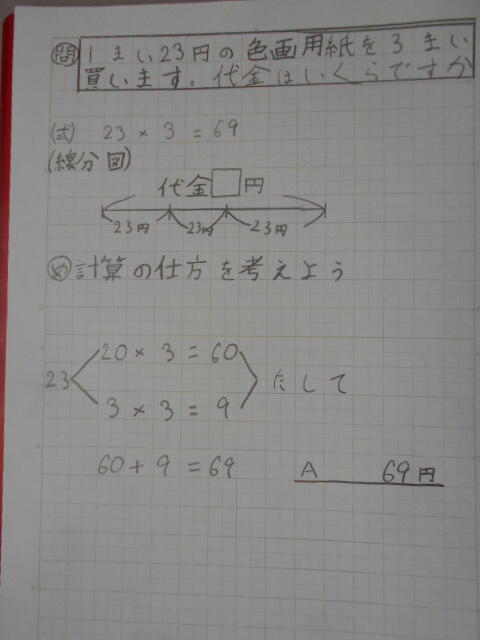 問 1まい23円の色画用紙を3まい
買います。代金はいくらですか
(式) 23 × 3 = 69
(線分図)
代金□円
23円 23円 23円
め 計算の仕方を考えよう
20 × 3 = 60
23 たして
3 × 3 = 9
60 + 9 = 69 A 69円